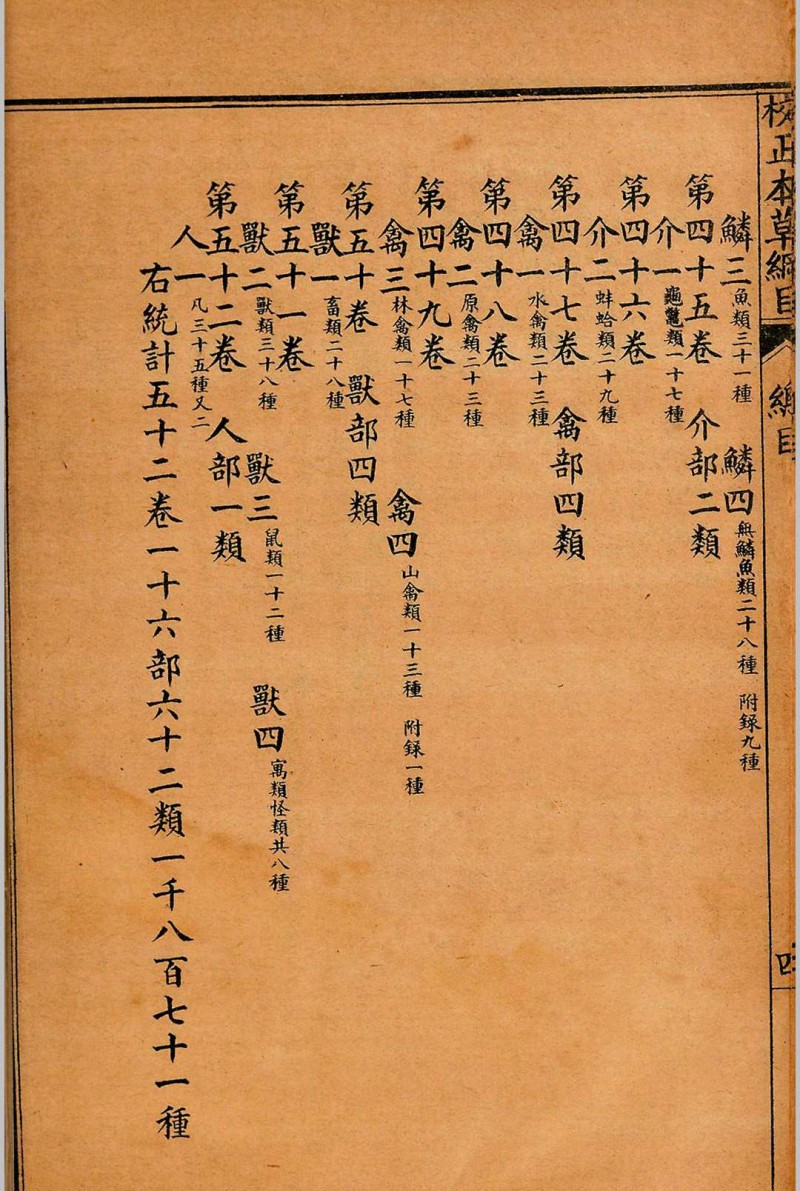 校正本草綱目 綱目 四
鱗三 魚類三十一種 鱗四 無鱗魚類二十八種 附録九種
第四十五卷 介部二類
介一 龜鼈類一十七種
第四十六卷
介二 蚌蛤類二十九種
第四十七卷 禽部四類
禽一 水禽類二十三種
第四十八卷
禽二 原禽類二十三種
第四十九卷
禽三 林禽類一十七種 禽四 山禽類一十三種 附録一種
第五十卷 獸部四類
獸一 畜類二十八種
第五十一卷
獸二 獸類三十八種 獸三 鼠類一十二種 獸四 寓類怪類共八種
第五十二卷 人部一類
人一 凡三十五種又二
右統計五十二卷一十六部六十二類一千八百七十一種